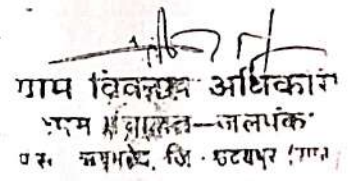 ग्राम विकास अधिकारी
ग्राम पंचायत-जलपंक
प.स. जि. उदयपुर (राज.)